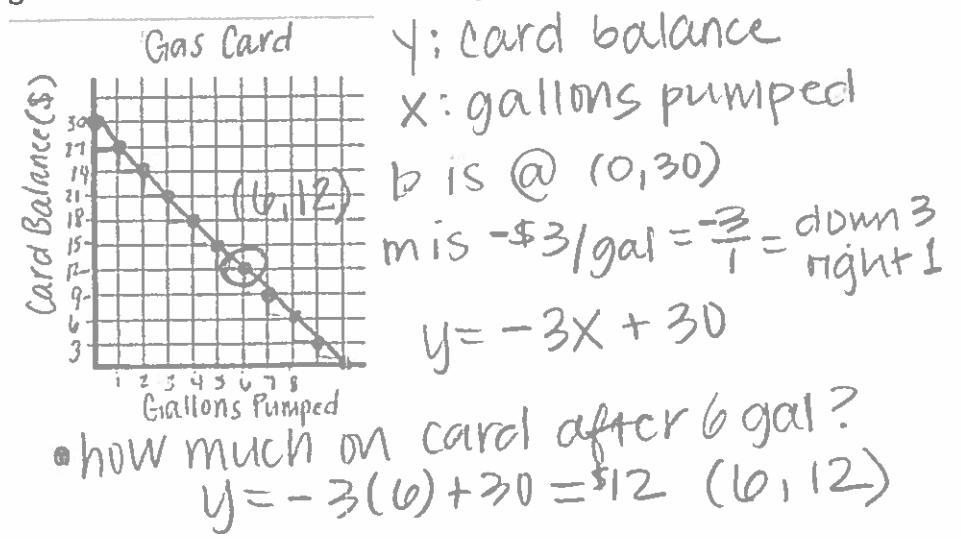 Gas Card
Card Balance ($)
30
27
14
21
18
15
12
9
6
3
(6,12)
1 2 3 4 5 6 7 8
Gallons Pumped
y: card balance
x: gallons pumped
b is @ (0,30)
m is -$3/gal = -3/1 = down 3 right 1
y = -3x + 30
• how much on card after 6 gal?
y = -3(6) + 30 = $12 (6, 12)